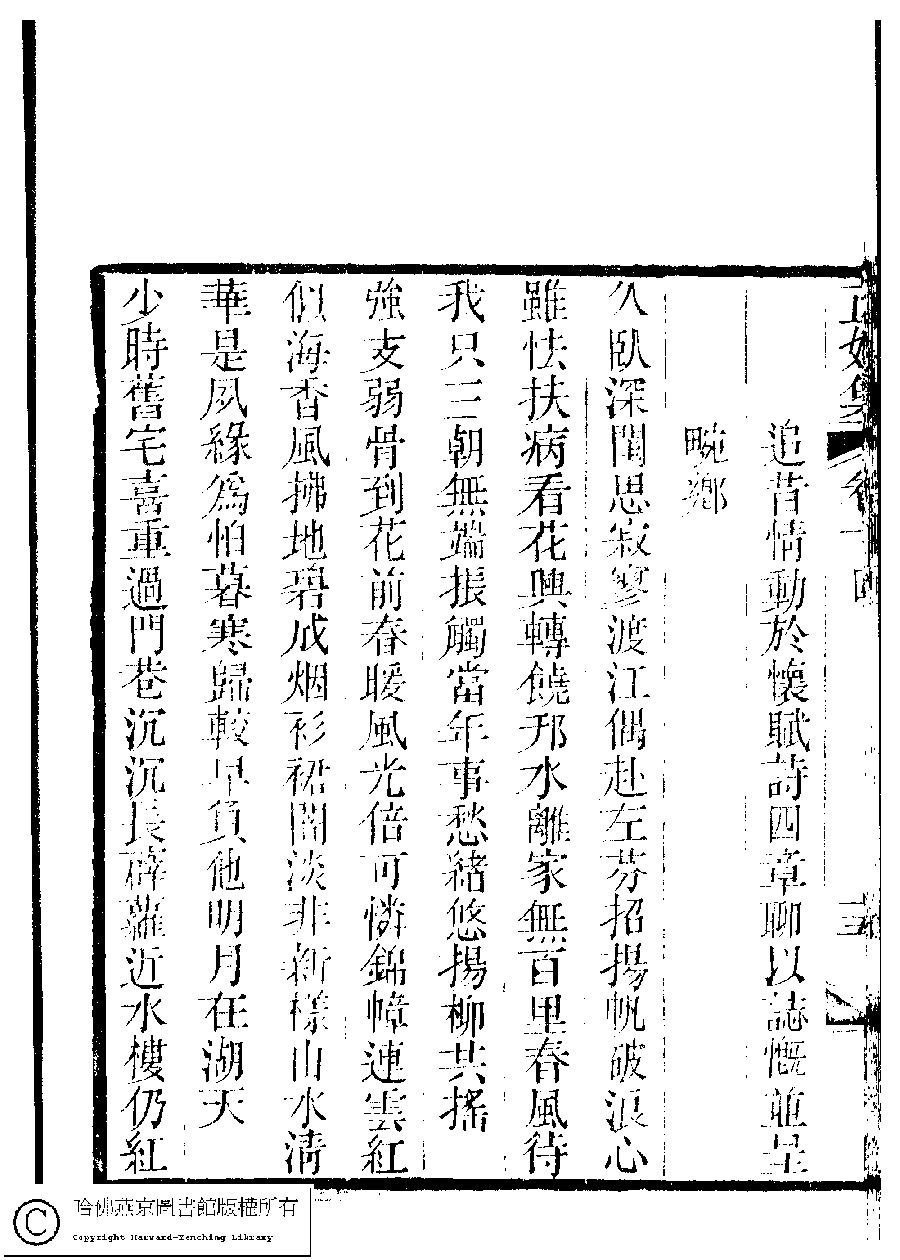 追昔情動於懷賦詩四章聊以誌慨並呈
畹鄉
久臥深閨思寂寥渡江偶赴左芬招揚帆破浪心
雖怯扶病看花興轉饒邗水離家無百里春風待
我只三朝無端振觸當年事愁緒悠揚柳共搖
強支弱骨到花前春暖風光倍可憐錦幛連雲紅
似海香風拂地碧成烟衫裙闇淡非新樣山水清
華是夙緣為怕暮寒歸較早負他明月在湖天
少時舊宅喜重過門巷沉沉長薜蘿近水樓仍紅
哈佛燕京圖書館版權所有
Copyright Harvard-Yenching Library